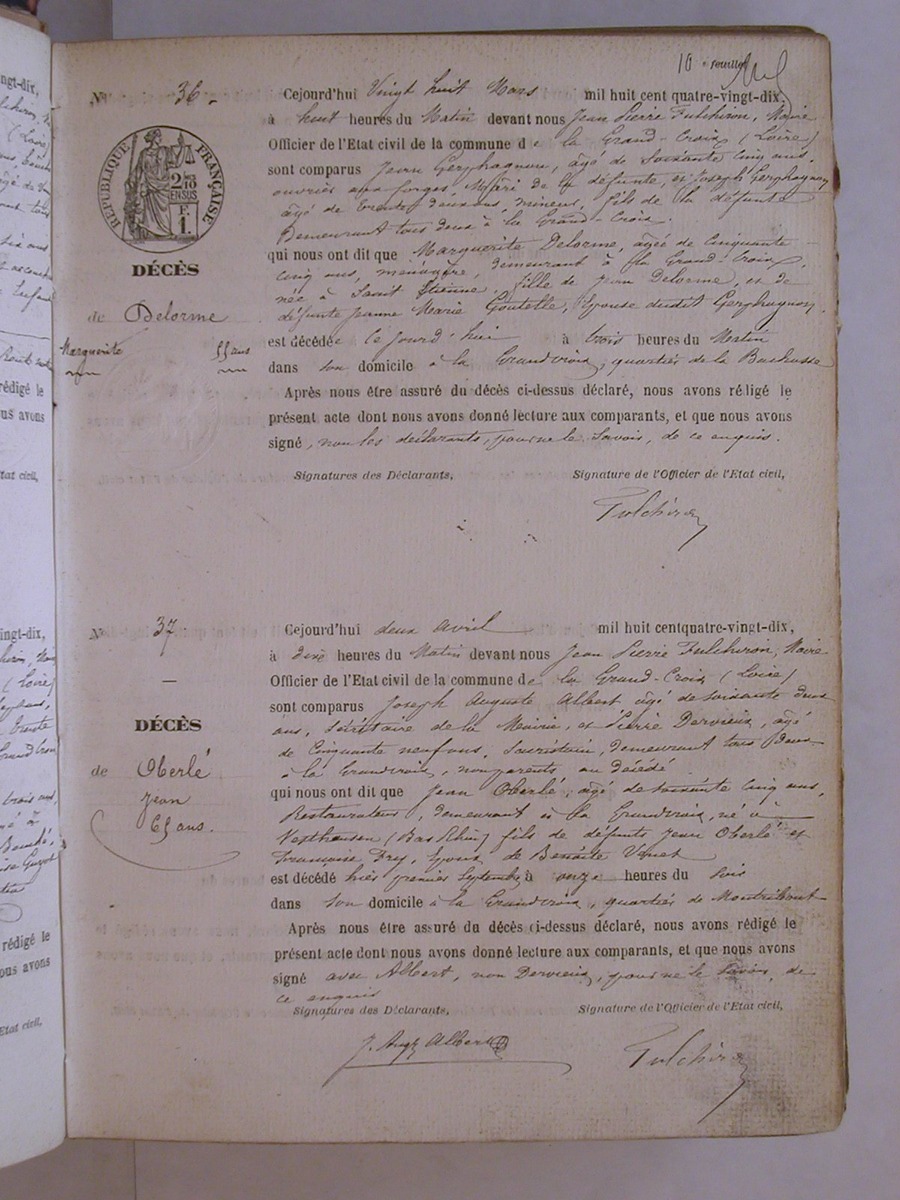 10
N° 36.
Cejourd'hui Vingt huit Mars mil huit cent quatre-vingt-dix,
à huit heures du Matin devant nous Jean Pierre Fulchiron, Maire
Officier de l'Etat civil de la commune de la Grand-Croix (Loire)
sont comparus Jean Gerphagnon, âgé de Soixante Cinq ans,
ouvrier aux forges, Mari de la défunte, et Joseph Gerphagnon
âgé de trente deux ans, mineur, fils de la défunte
Demeurant tous deux à la Grand-Croix.
qui nous ont dit que Marguerite Delorme, âgée de Cinquante
cinq ans, ménagère, demeurant à la Grand-Croix,
née à Saint Etienne, fille de Jean Delorme, et de
défunte Jeanne Marie Goutelle, Epouse dudit Gerphagnon
est décédée ce jourd'hui à trois heures du Matin
dans son domicile à la Grandcroix, quartier de la
Après nous être assuré du décès ci-dessus déclaré, nous avons rédigé le
présent acte dont nous avons donné lecture aux comparants, et que nous avons
signé, non les déclarants, pour ne le Savoir, de ce enquis.
Signatures des Déclarants,
Signature de l'Officier de l'Etat civil,
Fulchiron
RÉPUBLIQUE FRANÇAISE
2/10 EN SUS
F. 1.
DÉCÈS
de Delorme
Marguerite 55 ans
N° 37
Cejourd'hui deux Avril mil huit cent quatre-vingt-dix,
à dix heures du Matin devant nous Jean Pierre Fulchiron, Maire
Officier de l'Etat civil de la commune de la Grand-Croix (Loire)
sont comparus Joseph Auguste Albert âgé de soixante deux
ans, Secrétaire de la Mairie, et Pierre Dervieux, âgé
de Cinquante neuf ans, Sacristain, Demeurant tous Deux
à la Grandcroix, non parents au décédé
qui nous ont dit que Jean Oberlé, âgé de soixante Cinq ans,
Restaurateur, demeurant à la Grandcroix, né à
(Bas Rhin) fils de défunts Jean Oberlé et
Françoise Frey, Epoux de Benoite
est décédé hier premier Septembre à onze heures du Soir
dans son domicile à la Grandcroix, quartier de Montribout
Après nous être assuré du décès ci-dessus déclaré, nous avons rédigé le
présent acte dont nous avons donné lecture aux comparants, et que nous avons
signé avec Albert, non Dervieux, pour ne le Savoir, de
ce enquis
Signatures des Déclarants,
Signature de l'Officier de l'Etat civil,
J. Aug. Albert
Fulchiron
DÉCÈS
de Oberlé
Jean
65 ans.